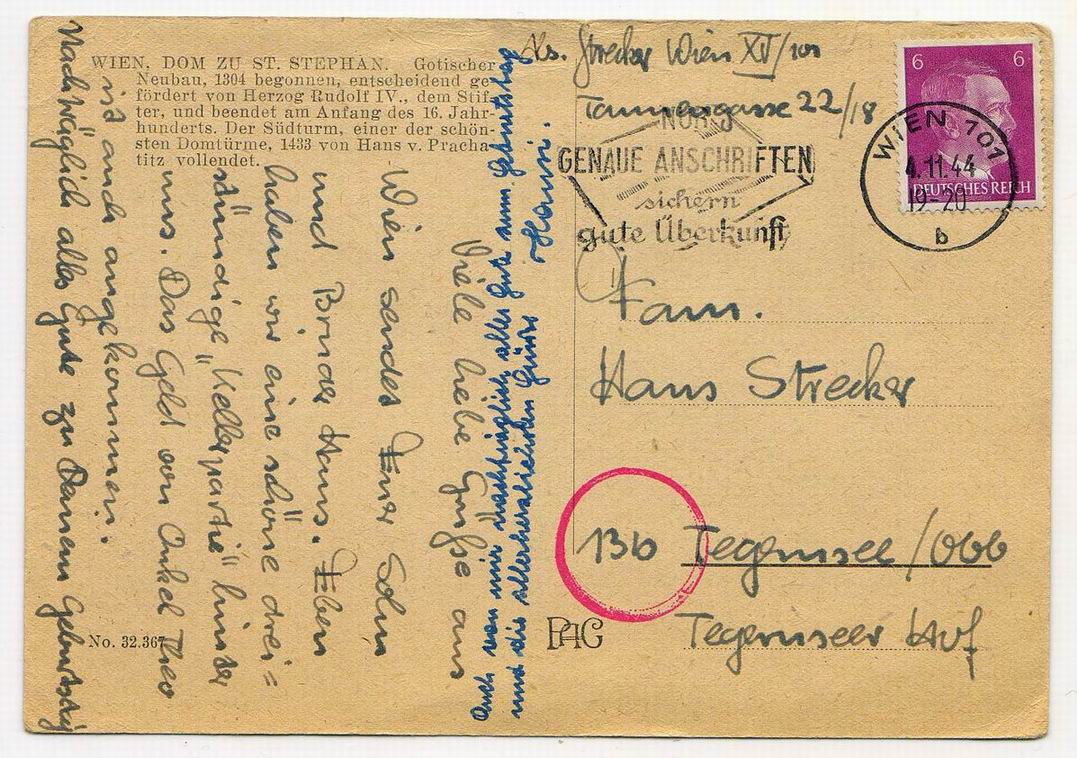 WIEN. DOM ZU ST. STEPHAN. Gotischer
Neubau, 1304 begonnen, entscheidend ge-
fördert von Herzog Rudolf IV., dem Stif-
ter, und beendet am Anfang des 16. Jahr-
hunderts. Der Südturm, einer der schön-
sten Domtürme, 1433 von Hans v. Pracha-
titz vollendet.
Viele liebe Grüße aus
Wien sendet Euer Sohn
und Bruder Hans. Eben
haben wir eine schöne drei=
stündige "Kellerpartie" hinter
uns. Das Geld von Onkel Theo
ist auch angekommen.
Nachträglich alles Gute zu Deinem Geburtstag
Auch von mir nachträglich alles Gute zum Geburtstag
und die allerherzlichsten Grüße Hansi.
No. 32.367
PAG
Abs. Strecker Wien XIV/101
Tannengasse 22/18
GENAUE ANSCHRIFTEN
sichern
gute Überkunft
6 6
DEUTSCHES REICH
WIEN 101
4.11.44
19-20
b
Fam.
Hans Strecker
13b Tegernsee/Obb
Tegernseer Hof